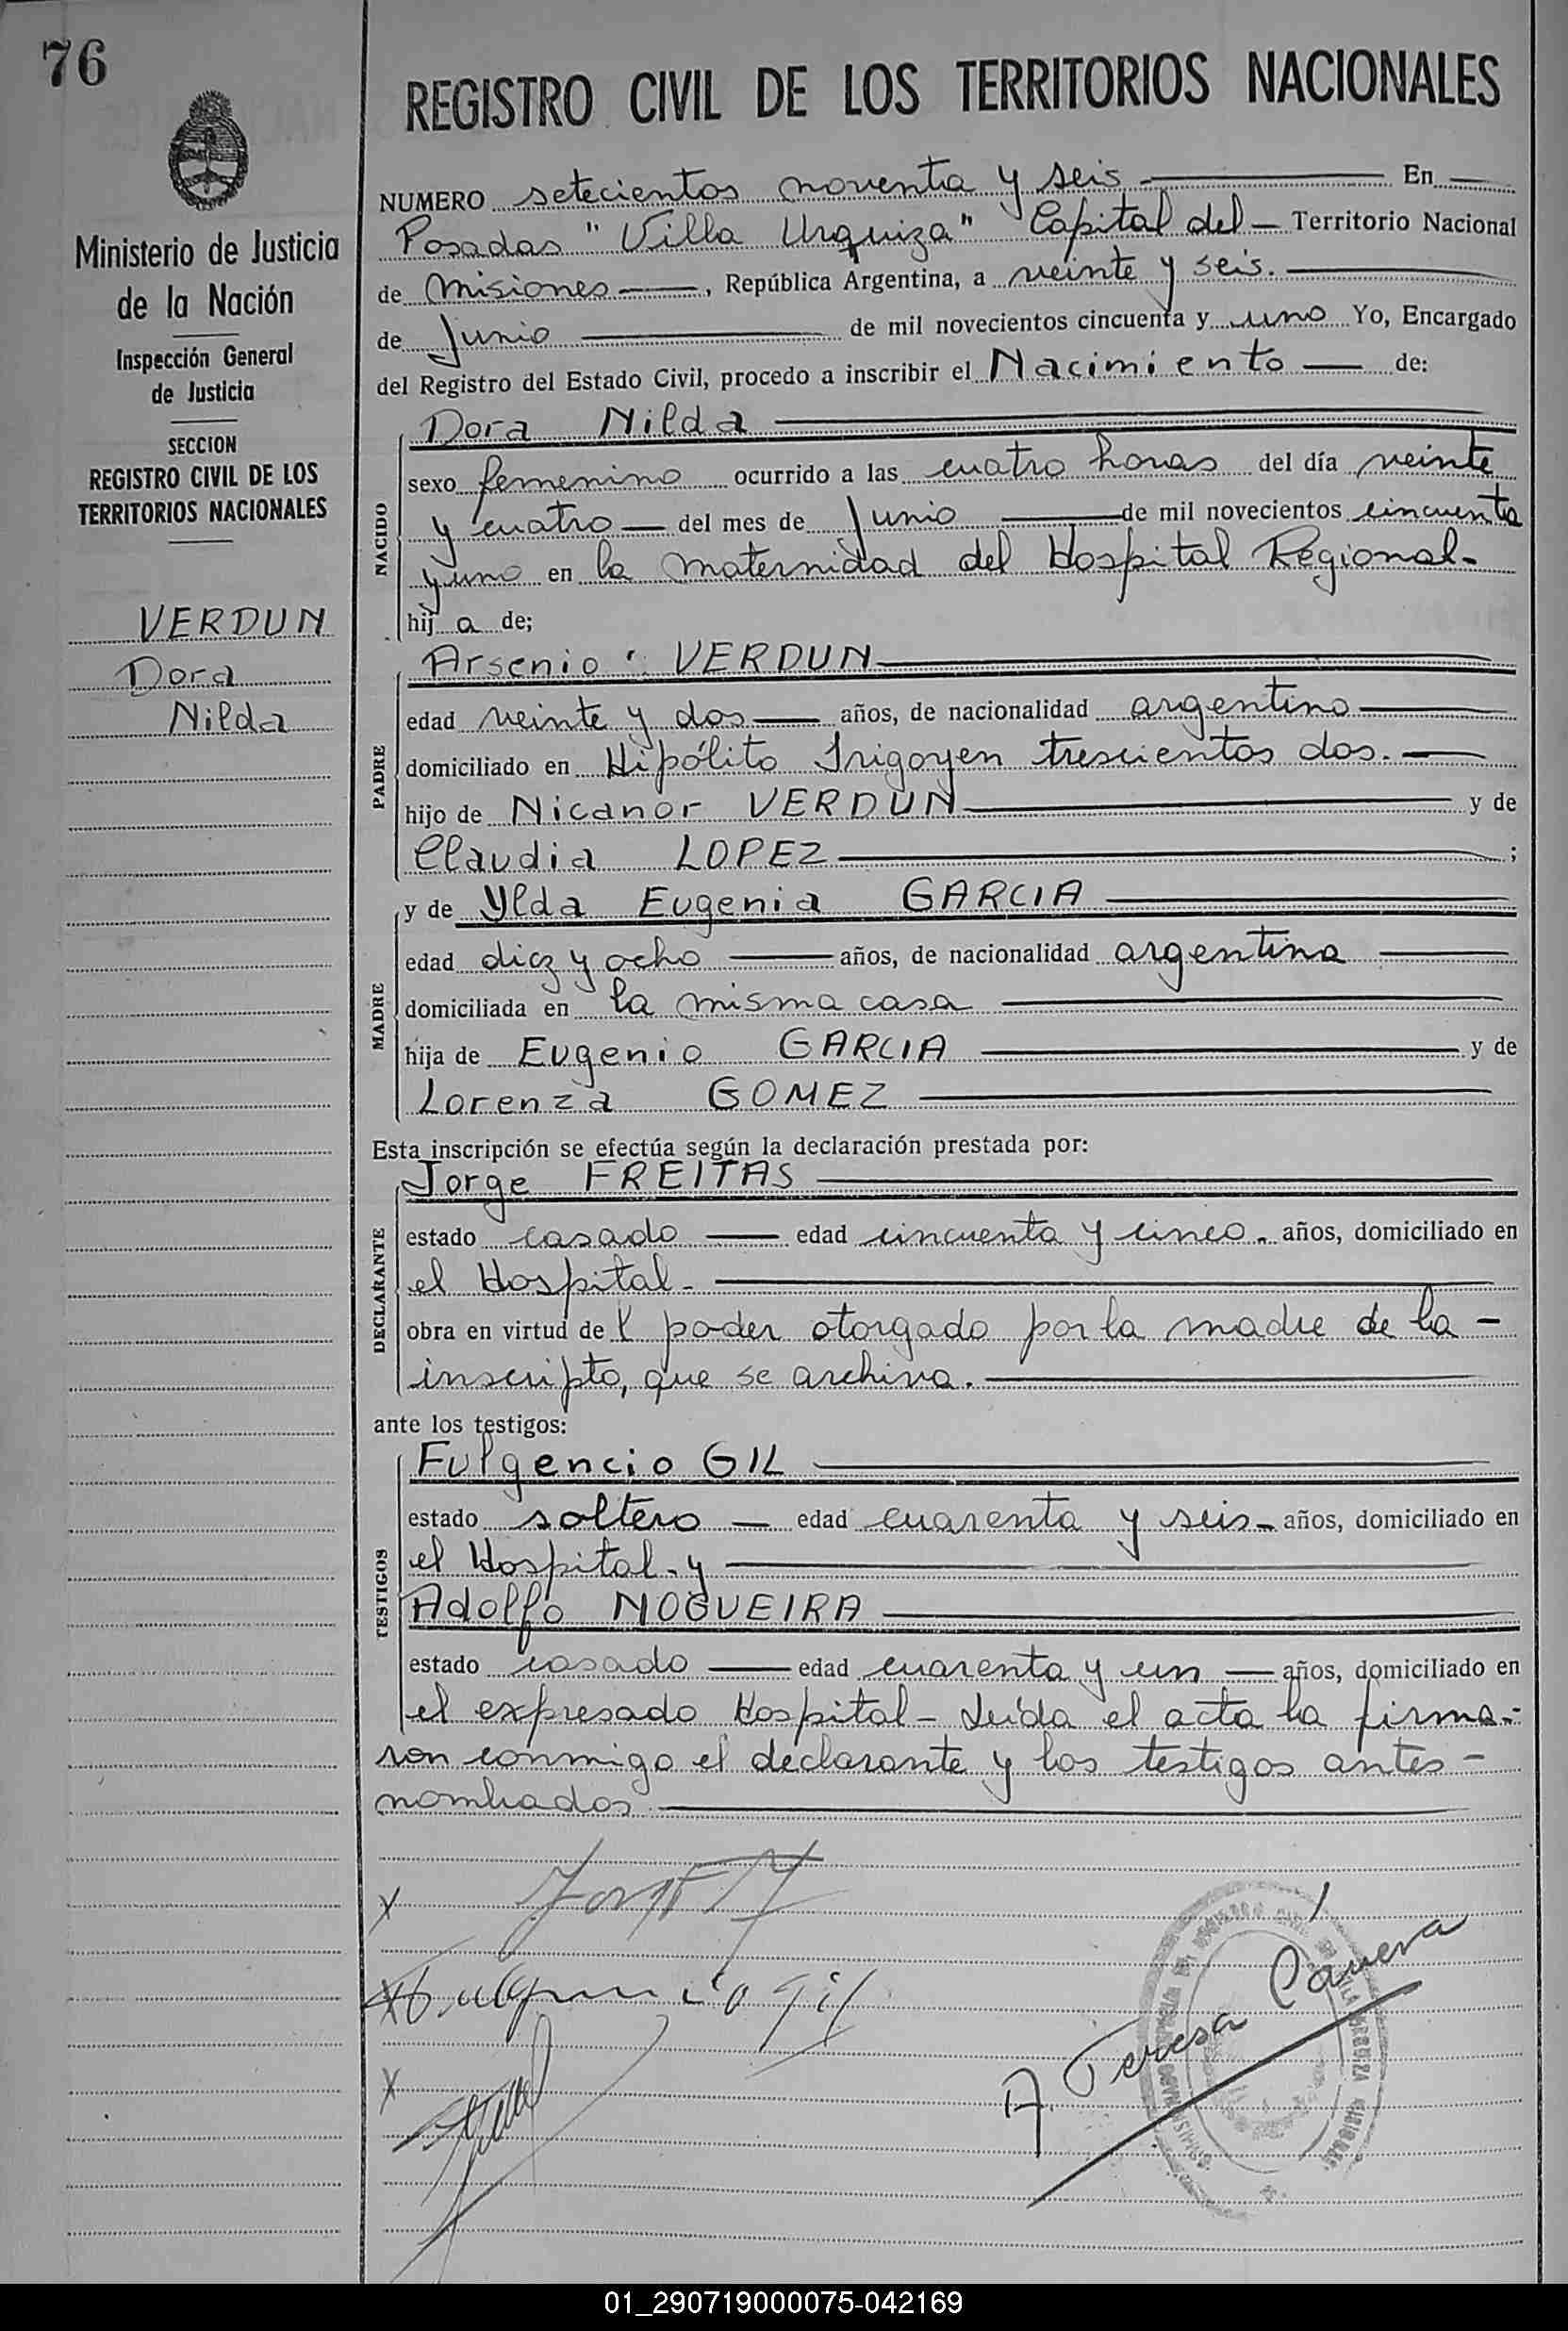 76
REGISTRO CIVIL DE LOS TERRITORIOS NACIONALES
Ministerio de Justicia
de la Nación
Inspección General
de Justicia
SECCION
REGISTRO CIVIL DE LOS
TERRITORIOS NACIONALES
VERDUN
Dora
Nilda
NUMERO setecientos noventa y seis En
Posadas "Villa Urquiza" Capital del Territorio Nacional
de Misiones, República Argentina, a veinte y seis.
de Junio de mil novecientos cincuenta y uno Yo, Encargado
del Registro del Estado Civil, procedo a inscribir el Nacimiento de:
NACIDO
Dora Nilda
sexo femenino ocurrido a las cuatro horas del día veinte
y cuatro del mes de Junio de mil novecientos cincuenta
y uno en la maternidad del Hospital Regional-
hij a de;
PADRE
Arsenio VERDUN
edad veinte y dos años, de nacionalidad argentino
domiciliado en Hipólito Irigoyen trescientos dos.
hijo de Nicanor VERDUN y de
Claudia LOPEZ ;
MADRE
y de Ylda Eugenia GARCIA
edad diez y ocho años, de nacionalidad argentina
domiciliada en la misma casa
hija de Eugenio GARCIA y de
Lorenza GOMEZ
Esta inscripción se efectúa según la declaración prestada por:
DECLARANTE
Jorge FREITAS
estado casado edad cincuenta y cinco. años, domiciliado en
el Hospital-
obra en virtud del poder otorgado por la madre de la -
inscripto, que se archiva.
ante los testigos:
TESTIGOS
Fulgencio GIL
estado soltero edad cuarenta y seis años, domiciliado en
el Hospital-y
Adolfo NOGUEIRA
estado casado edad cuarenta y un años, domiciliado en
el expresado Hospital- Leída el acta la firma-
ron conmigo el declarante y los testigos antes -
nombrados
x
x Fulgencio gil
x
A. Teresa
01_290719000075-042169